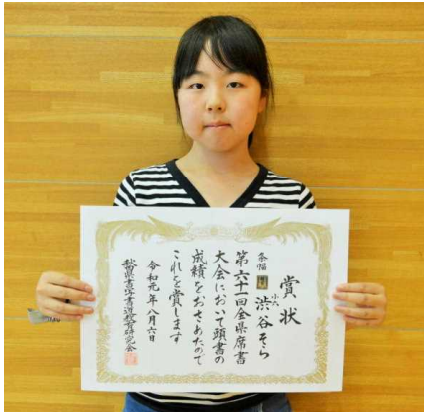 賞状
条幅 小六 渋谷そら
第六十一回全県席書
大会において頭書の
成績をおさめたので
これを賞します
令和元年八月六日
秋田県書写書道教育研究会